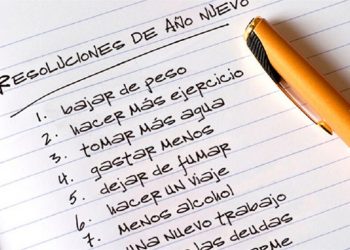 RESOLUCIONES DE AÑO NUEVO
1. bajar de peso
2. hacer más ejercicio
3. tomar más agua
4. gastar menos
5. dejar de fumar
6. hacer un viaje
7. menos alcohol
una nuevo trabajo
las deudas